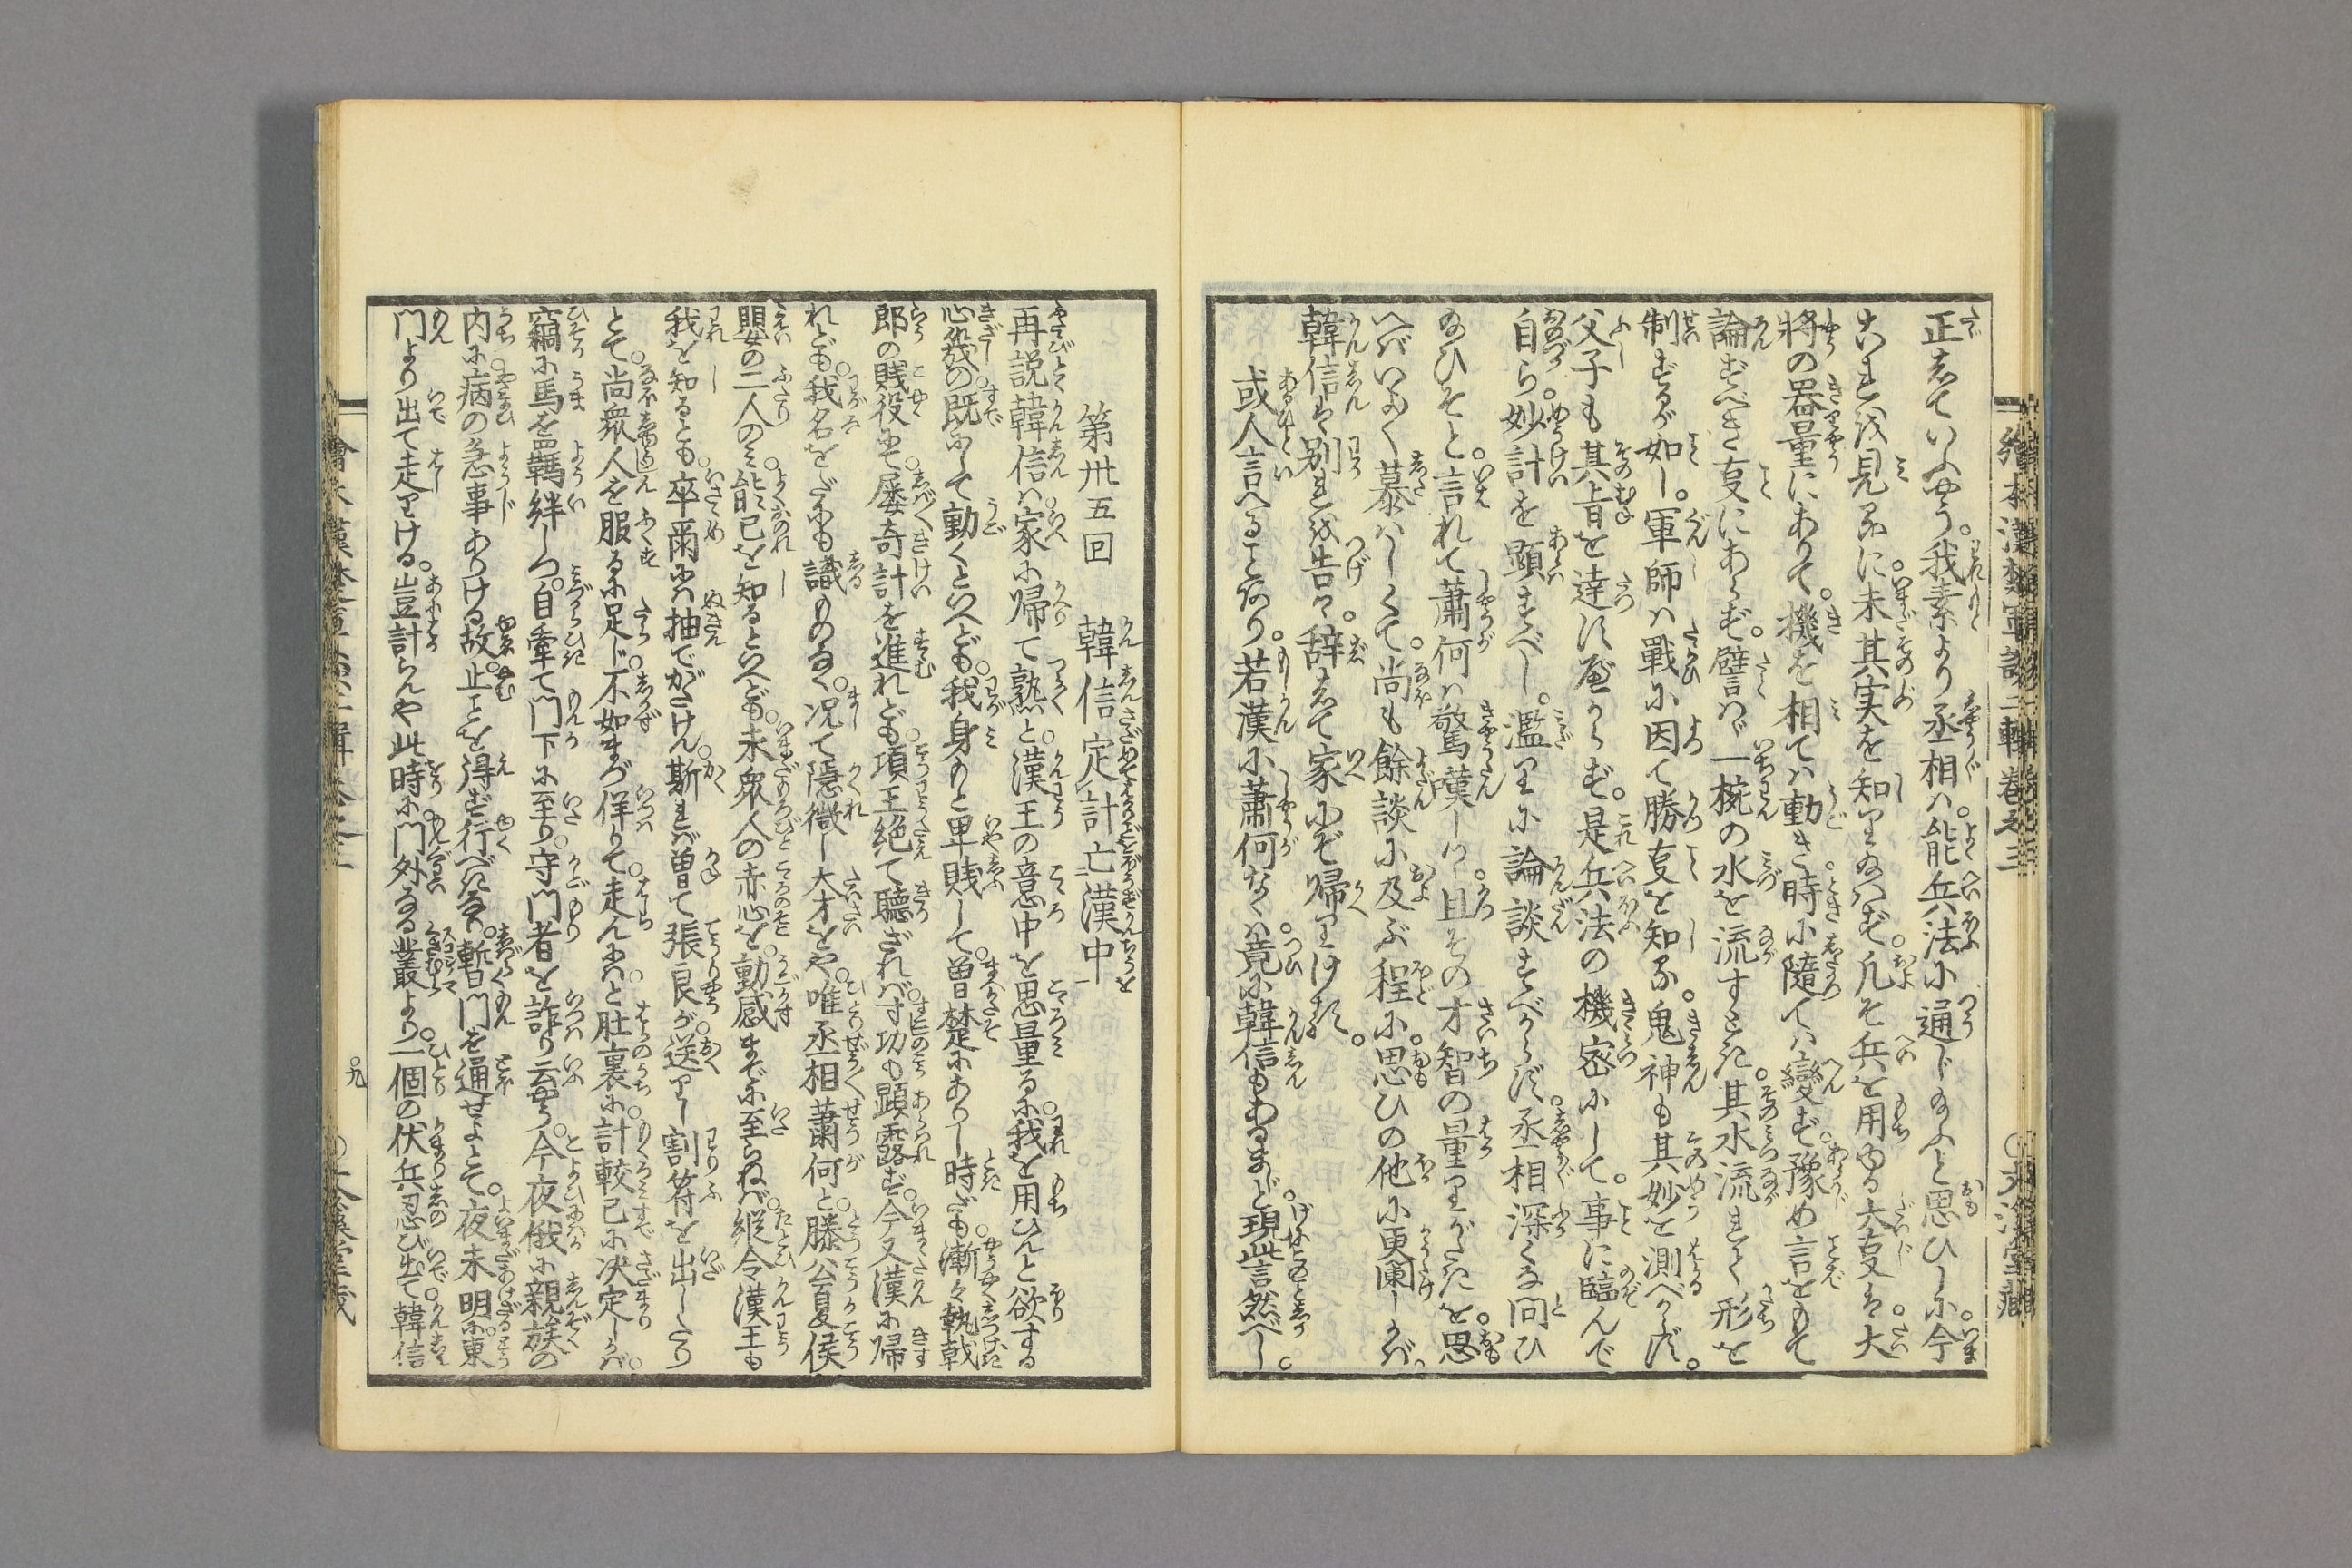 正していふやう。我素より丞相ハ。能兵法に通じ給ふと思ひしに。今
これを見るに。未其実を知り給ハず。凡そ兵を用ゆる大事は。大
将の器量にありて。機を相てハ動き。時に隨てハ變ず。豫め言をもて
論ずべき事にあらず。譬バ一椀の水を流すごとき。其水流れて形を
制するが如し。軍師ハ戰に因て勝事を知る。鬼神も其妙を測べからず。
父子も其旨を達すべからず。是兵法の機密にして。事に臨んで
自ら。妙計を顕すべし。濫りに論談すべからず。丞相深くな問ひ
給ひそと。言れて蕭何ハ驚嘆しつ。且その才智の量りがたきを。思
へバいよ〳〵慕ハしくて。尚も餘談に及ぶ程に。思ひの他に更闌しかバ。
韓信は別れを告て。辞して家にぞ帰りける。
或人言へることあり。若漢に蕭何なくハ。竟に韓信もあるまじと。現此言然べし。
繪本漢楚軍談二輯巻之三
第卅五回　韓信定計亡漢中
再説韓信ハ。家に帰て熟と。漢王の意中を思量るに。我を用ひんと欲する
心幾の。既にして動くといへども。我身もと卑賤して。曽楚にありし時だも。漸々執戟
郎の賤役にて。屡奇計を進れども。項王絶て聴ざれバ。寸功も顕露ず。今又漢に帰
れども。我名をだにも識ものなく。况て隠微し大才をや。唯丞相蕭何と。滕公夏侯
嬰の二人のミ。能己を知るといへども。未衆人の赤心を。動感までに至らねバ。縦令漢王も
我を知るとも。卒爾にハ抽でがたけん。斯れバ曽て張良が。送りし割符を出したり
とて。尚衆人を服るに足ず。不如まづ佯りて。走んにハと肚裏に。計較已に决定しかバ。
竊に馬を羈絆しつ。自牽て門下に至り。守門者を詐り云やう。今夜俄に親族の
内に。病の急事ありける故。止ことを得ず行べきなり。暫門を通せよとぞ。夜未明に。東
門より出て走りける。豈計らんや此時に。門外なる叢より。一個の伏兵忍び出て。韓信
九